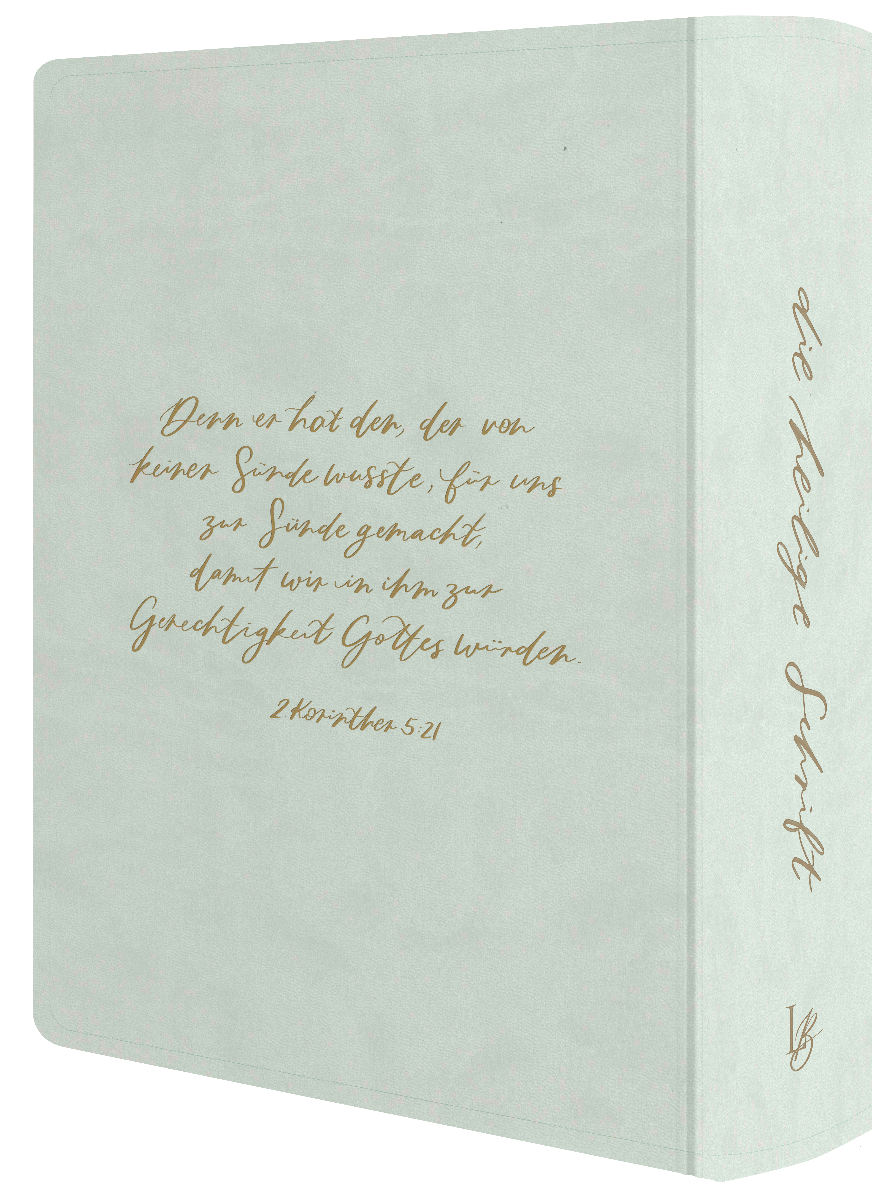 Denn er hat den, der von
keiner Sünde wusste, für uns
zur Sünde gemacht,
damit wir in ihm zur
Gerechtigkeit Gottes würden.
2 Korinther 5:21
die heilige Schrift
LB